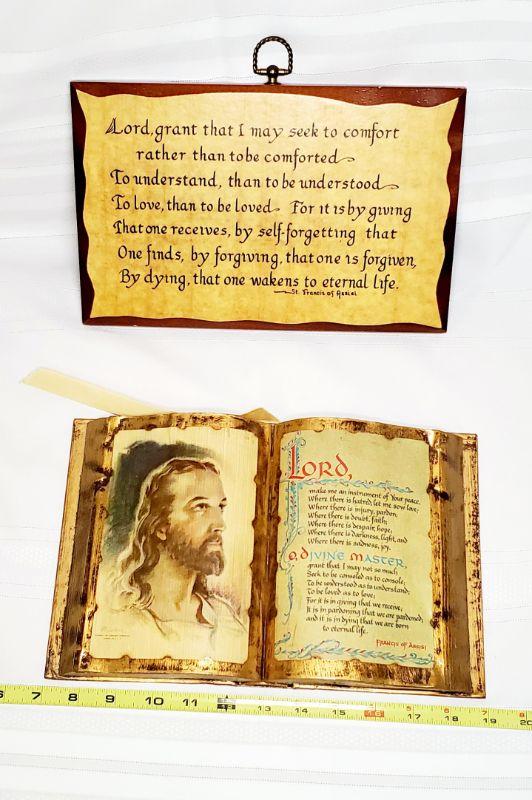 Lord, grant that I may seek to comfort
rather than to be comforted
To understand, than to be understood
To love, than to be loved. For it is by giving
That one receives, by self-forgetting that
One finds, by forgiving, that one is forgiven,
By dying, that one wakens to eternal life.
St. Francis of Assisi
LORD,
make me an instrument of Your peace.
Where there is hatred, let me sow love;
Where there is injury, pardon;
Where there is doubt, faith;
Where there is despair, hope;
Where there is darkness, light, and
Where there is sadness, joy.
O, DIVINE MASTER,
grant that I may not so much
Seek to be consoled as to console;
To be understood as to understand;
To be loved as to love;
For it is in giving that we receive;
It is in pardoning that we are pardoned;
and it is in dying that we are born
to eternal life.
FRANCIS OF ASSISI
6 7 8 9 10 11 13 14 15 16 17 18 19 20